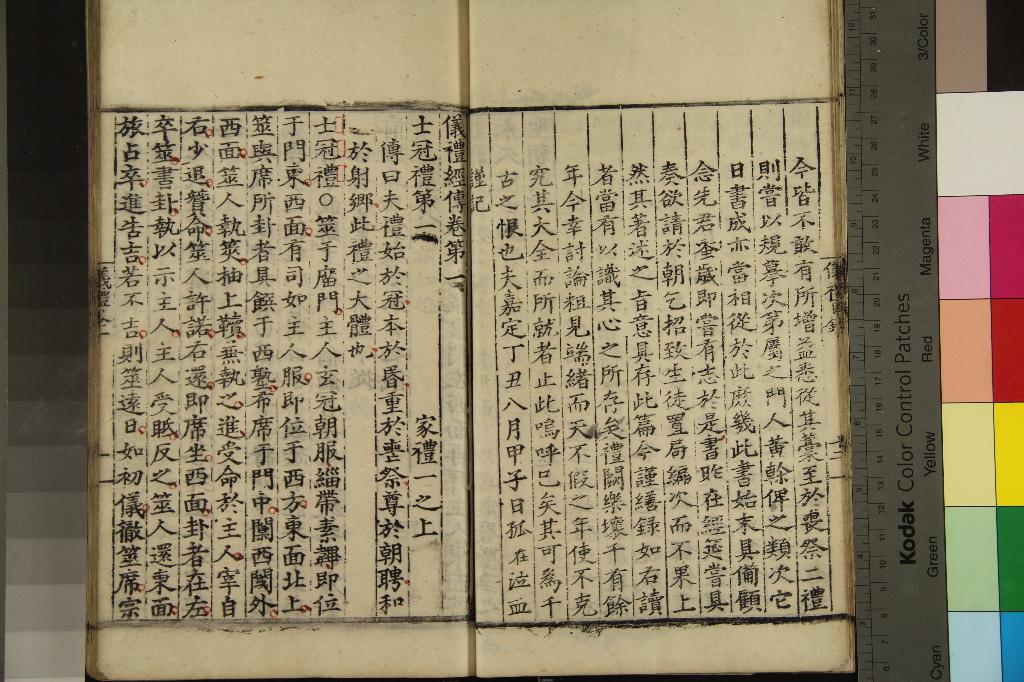 今皆不敢有所增益悉從其藁至於喪祭二禮
則嘗以規摹次第屬之門人黃榦俾之類次它
日書成亦當相從於此庶幾此書始末具備顧
念先君蚤歲即嘗有志於是書昨在經筵嘗具
奏欲請於朝乞招致生徒置局編次而不果上
然其著述之旨意具存此篇今謹繕錄如右讀
者當有以識其心之所存矣禮闕樂壞千有餘
年今幸討論粗見端緒而天不假之年使不克
究其大全而所就者止此嗚呼已矣其可為千
古之恨也夫嘉定丁丑八月甲子日孤在泣血
謹記
儀禮經傳卷第一
士冠禮第一 家禮一之上
傳曰夫禮始於冠本於昏重於喪祭尊於朝聘和
於射鄉此禮之大體也
士冠禮○筮于廟門主人玄冠朝服緇帶素韠即位
于門東西面有司如主人服即位于西方東面北上
筮與席所卦者具饌于西塾布席于門中闑西閾外
西面筮人執筴抽上韇兼執之進受命於主人宰自
右少退贊命筮人許諾右還即席坐西面卦者在左
卒筮書卦執以示主人主人受眡反之筮人還東面
旅占卒進告吉若不吉則筮遠日如初儀徹筮席宗
Kodak Color Control Patches
Cyan Green Yellow Red Magenta White 3/Color